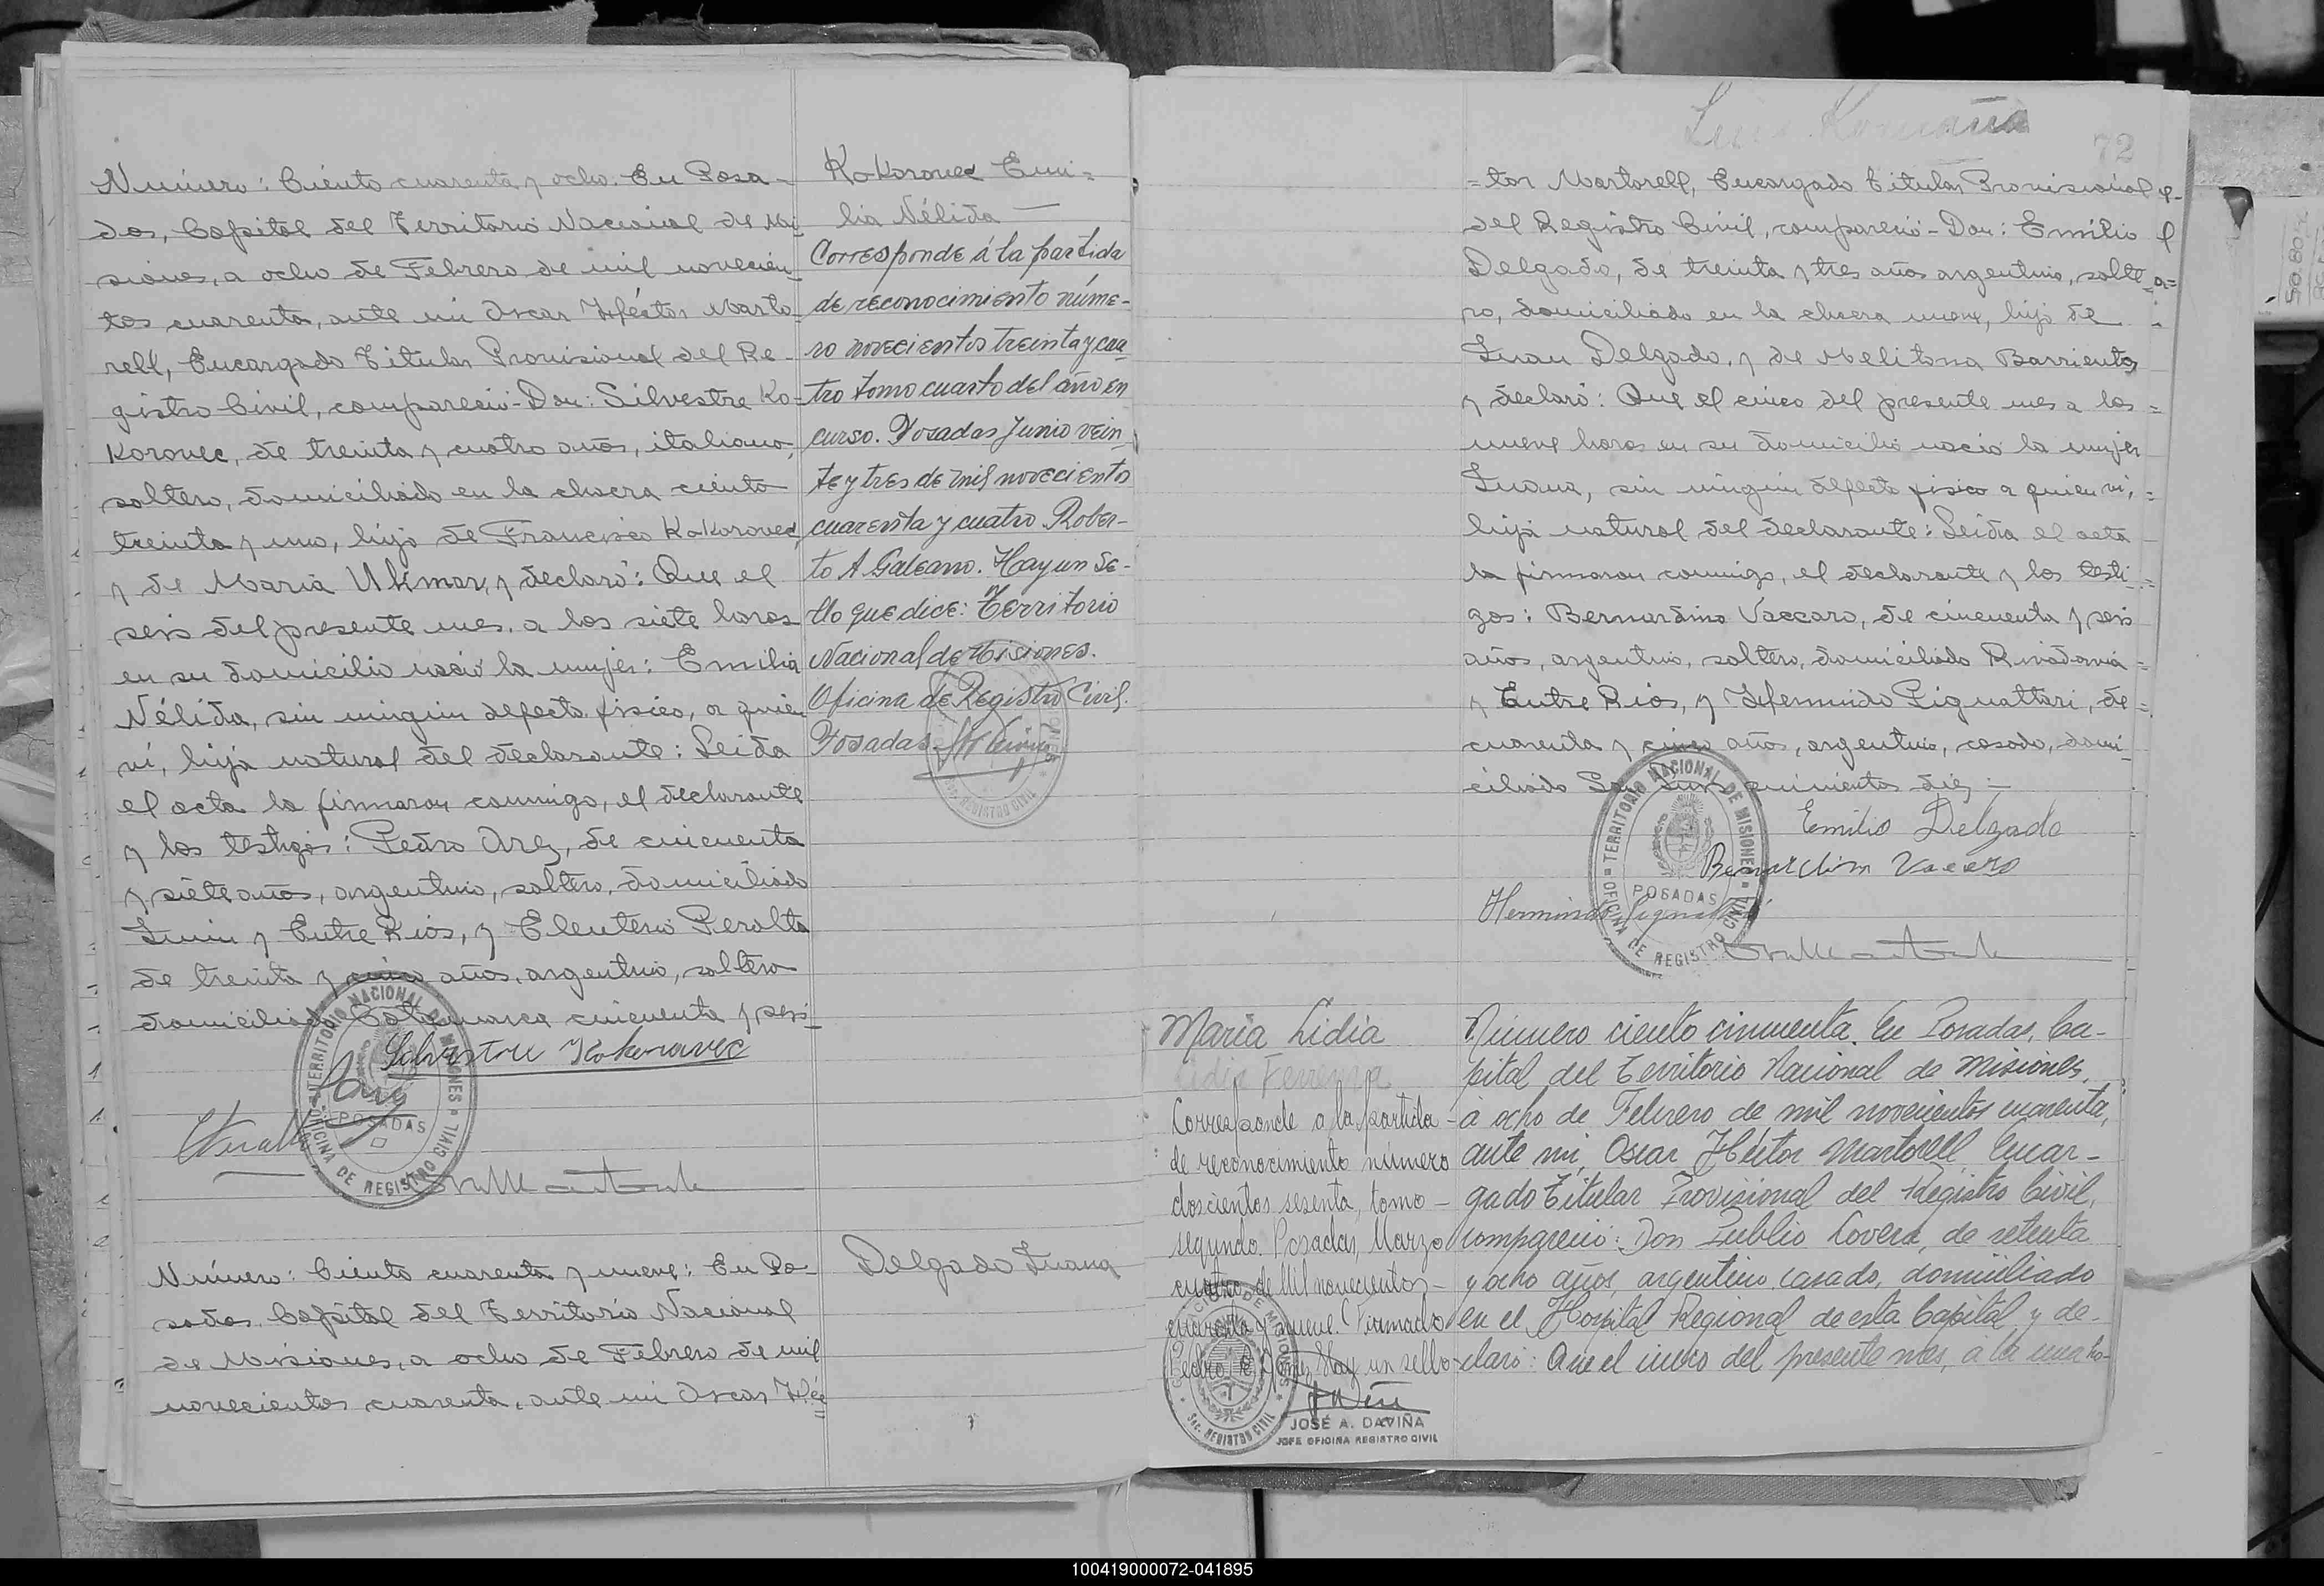 Número: Ciento cuarenta y ocho. En Posa-
das, Capital del Territorio Nacional de Mi-
siones, a ocho de Febrero de mil novecien-
tos cuarenta, ante mi Oscar Héctor Marto-
rell, Encargado Titular Provisional del Re-
gistro Civil, compareció - Don: Silvestre Ko-
Koronec, de treinta y cuatro años, italiano,
soltero, domiciliado en la chacra ciento
treinta y uno, hijo de Francisco KoKoronec,
y de Maria Ukmar, y declaró: Que el
seis del presente mes, a las siete horas
en su domicilio nació la mujer: Emilia
Nélida, sin ningun defecto fisico, a quien
ví, hija natural del declarante: Leida
el acta la firmaron conmigo, el declarante
y los testigos: Pedro Arez, de cincuenta
y siete años, argentino, soltero, domiciliado
Junin y Entre Rios, y Eleuterio Peralta
de treinta y cinco años, argentino, soltero
domiciliado Catamarca cincuenta y seis
Silvestre Kokoravec
TERRITORIO NACIONAL DE MISIONES
POSADAS
OFICINA DE REGISTRO CIVIL
KoKoronec Emi=
lia Nélida
Corresponde á la partida
de reconocimiento núme-
ro novecientos treinta y cua
tro tomo cuarto del año en
curso. Posadas Junio vein
te y tres de mil novecientos
cuarenta y cuatro. Rober-
to A Galeano. Hay un se-
llo que dice: "Territorio
Nacional de Misiones.
Oficina de Registro Civil.
Posadas
REGISTRO CIVIL
Número: Ciento cuarenta y nueve: En Po-
sadas, Capital del Territorio Nacional
de Misiones, a ocho de Febrero de mil
novecientos cuarenta, ante mi Oscar Héc
Delgado Juana
72
=tor Martorell, Encargado Titular Provisional
del Registro Civil, compareció - Don: Emilio
Delgado, de treinta y tres años argentino, solte
ro, domiciliado en la chacra nueve, hijo de
Juan Delgado, y de Melitona Barrientos,
y declaró: Que el cinco del presente mes a las
nueve horas en su domicilio nació la mujer
Juana, sin ningun defecto fisico a quien vi,
hija natural del declarante: Leida el acta
la firmaron conmigo, el declarante y los testi
gos: Bernardino Vaccaro, de cincuenta y seis
años, argentino, soltero, domiciliado Rivadavia
y Entre Rios, y Hermindo Pignattari, de
cuarenta y cinco años, argentino, casado, domi
ciliado San Luis quinientos diez -
Emilio Delgado
Bernardino Vaccaro
TERRITORIO NACIONAL DE MISIONES
POSADAS
OFICINA DE REGISTRO CIVIL
María Lidia
Lidia Ferreyra
Corresponde a la partida
de reconocimiento número
doscientos sesenta, tomo
segundo. Posadas, Marzo
cuatro de Mil novecientos
cuarenta y nueve. Firmado
Pedro Hay un sello
JOSÉ A. DAVIÑA
JEFE OFICINA REGISTRO CIVIL
Número ciento cincuenta. En Posadas, Ca-
pital del Territorio Nacional de Misiones,
á ocho de Febrero de mil novecientos cuarenta,
ante mi, Oscar Héctor Martorell Encar-
gado Titular Provisional del Registro Civil,
compareció: Don Publio Lovera, de setenta
y ocho años, argentino, casado, domiciliado
en el Hospital Regional de esta Capital y de-
claró: Que el cinco del presente mes, á la una ho-
100419000072-041895